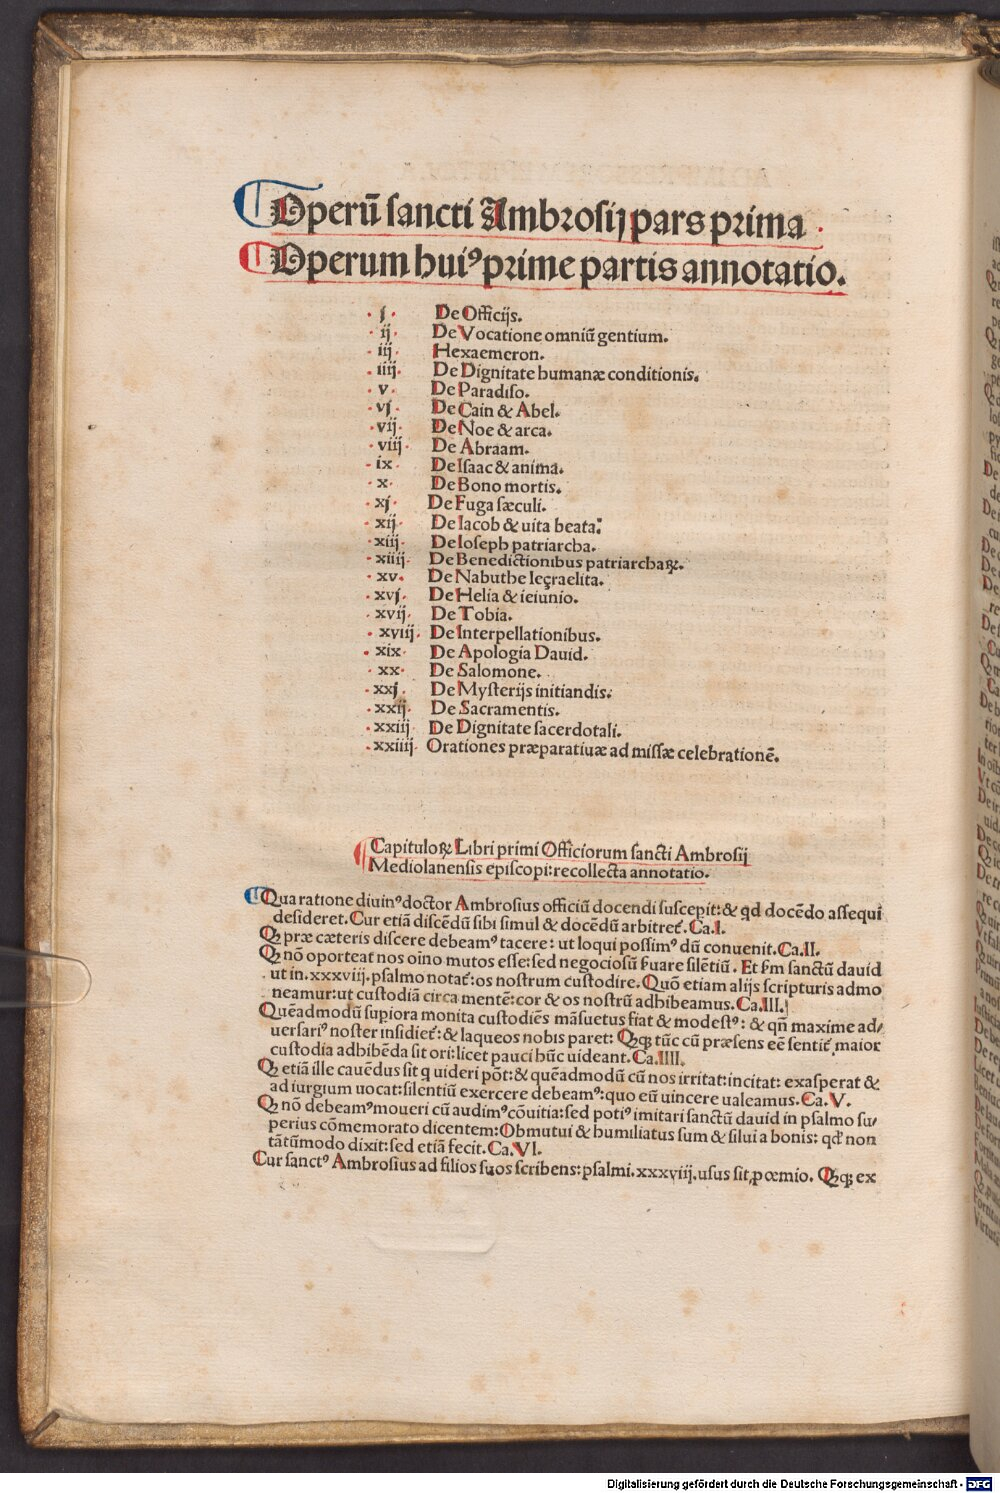 Operū sancti Ambrosij pars prima
Operum huiꝰ prime partis annotatio.
·j· De Officijs.
·ij· De Vocatione omniū gentium.
·iij· Hexaemeron.
·iiij· De Dignitate humanæ conditionis.
·v· De Paradiso.
·vj· De Cain & Abel.
·vij· De Noe & arca.
·viij· De Abraam.
·ix· De Isaac & anima.
·x· De Bono mortis.
·xj· De Fuga sæculi.
·xij· De Iacob & uita beata.
·xiij· De Ioseph patriarcha.
·xiiij· De Benedictionibus patriarchaꝝ.
·xv· De Nabuthe Ieçraelita.
·xvj· De Helia & ieiunio.
·xvij· De Tobia.
·xviij· De Interpellationibus.
·xix· De Apologia Dauid.
·xx· De Salomone.
·xxj· De Mysterijs initiandis.
·xxij· De Sacramentis.
·xxiij De Dignitate sacerdotali.
·xxiiij· Orationes præparatiuæ ad missæ celebrationē.
Capituloꝝ Libri primi Officiorum sancti Ambrosij
Mediolanensis episcopi: recollecta annotatio.
Qua ratione diuinꝰ doctor Ambrosius officiū docendi suscepit: & qd docēdo assequi
desideret. Cur etiā discēdū sibi simul & docēdū arbitret᷑. Ca.I.
Qꝫ præ cæteris discere debeamꝰ tacere: ut loqui possimꝰ dū conuenit. Ca.II.
Qꝫ nō oporteat nos oīno mutos esse: sed negociosū ẜuare silētiū. Et ẜm sanctū dauid
ut in. xxxviij. psalmo notat᷑: os nostrum custodire. Quō etiam alijs scripturis admo
neamur: ut custodiā circa mentē: cor & os nostrū adhibeamus. Ca.III.
Quēadmodū supiora monita custodiēs māsuetus fiat & modestꝰ: & qñ maxime ad/
uersariꝰ noster insidiet᷑: & laqueos nobis paret: Qꝫqꝫ tūc cū præsens eē sentit᷑ maior
custodia adhibēda sit ori: licet pauci hūc uideant. Ca.IIII.
Qꝫ etiā ille cauēdus sit q uideri pōt: & quēadmodū cū nos irritat: incitat: exasperat &
ad iurgium uocat: silentiū exercere debeamꝰ: quo eū uincere ualeamus. Ca.V.
Qꝫ nō debeamꝰ moueri cū audimꝰ cōuitia: sed potiꝰ imitari sanctū dauid in psalmo su/
perius cōmemorato dicentem: Obmutui & humiliatus sum & silui a bonis: qđ non
tātūmodo dixit: sed etiā fecit. Ca.VI.
Cur sanctꝰ Ambrosius ad filios suos scribens: psalmi. xxxviij. usus sit ꝓœmio. Qꝫqꝫ ex
Digitalisierung gefördert durch die Deutsche Forschungsgemeinschaft - DFG